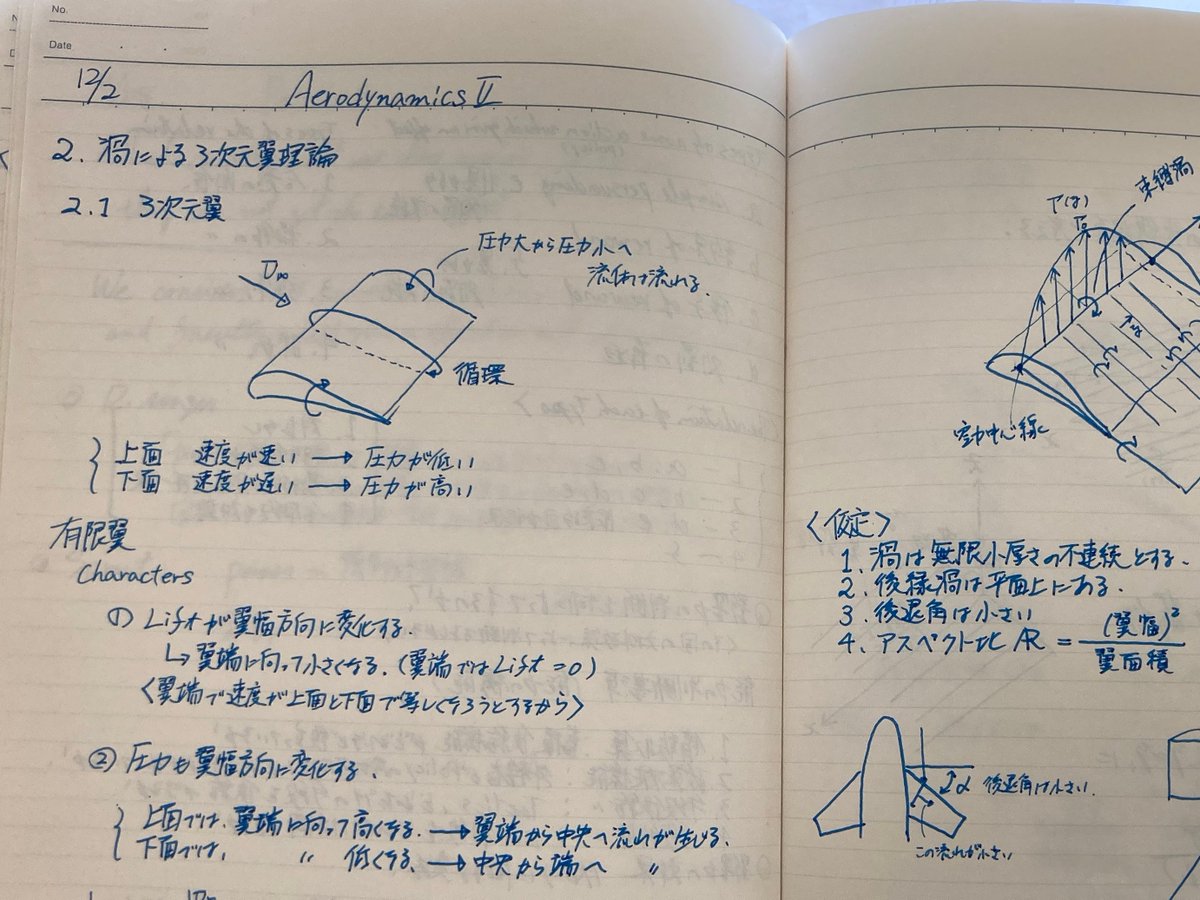 No.
Date
12/2 Aerodynamics II
2. 渦による3次元翼理論
2.1 3次元翼
U∞
圧力大から圧力小へ
流体は流れる.
循環
上面 速度が速い → 圧力が低い
下面 速度が遅い → 圧力が高い
有限翼
Characters
① Liftが翼幅方向に変化する.
↳ 翼端に向って小さくなる. (翼端ではLift = 0)
〈翼端で速度が上面と下面で等しくなろうとするから〉
② 圧力も翼幅方向に変化する.
上面では, 翼端に向って高くなる. → 翼端から中央へ流れが生じる.
下面では, 〃 低くなる. → 中央から端へ 〃
束縛渦
Γ(y)
Γ0
空力中心線
〈仮定〉
1. 渦は無限小厚さの不連続とする.
2. 後縁渦は平面上にある.
3. 後退角は小さい
4. アスペクト比 AR = (翼幅)² / 翼面積
α 後退角は小さい.
この流れが小さい